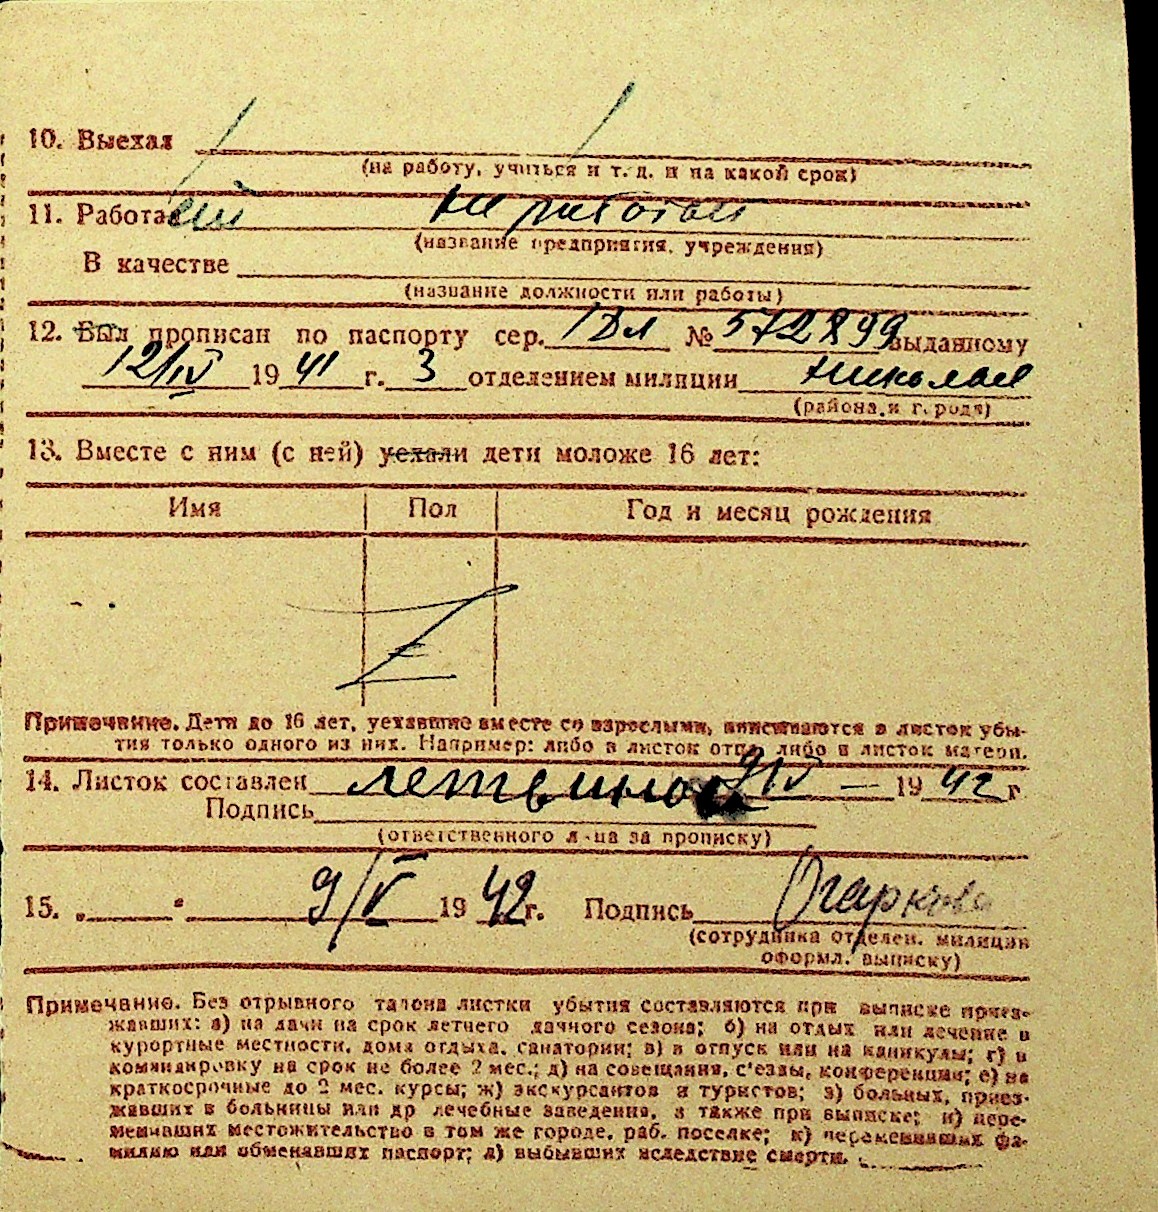 10. Выехал
(на работу, учиться и т. д. и на какой срок)
11. Работал не работал
(название предприятия, учреждения)
В качестве
(название должности или работы)
12. Был прописан по паспорту сер. № 572899 выданному
12/IV 1941 г. 3 отделением милиции Николаев
(района и города)
13. Вместе с ним (с ней) уехали дети моложе 16 лет:
Имя Пол Год и месяц рождения
Z
Примечание. Дети до 16 лет, уехавшие вместе со взрослыми, вписываются в листок убы-
тия только одного из них. Например: либо в листок отца, либо в листок матери.
14. Листок составлен 9/IV — 1942 г
Подпись
(ответственного лица за прописку)
15. „ " 9/V 1942 г. Подпись Огаркова
(сотрудника отделен. милиции
оформл. выписку)
Примечание. Без отрывного талона листки убытия составляются при выписке приез-
жавших: а) на дачи на срок летнего дачного сезона; б) на отдых или лечение в
курортные местности, дома отдыха, санатории; в) в отпуск или на каникулы; г) в
командировку на срок не более 2 мес.; д) на совещания, с'езды, конференции; е) на
краткосрочные до 2 мес. курсы; ж) экскурсантов и туристов; з) больных, приез-
жавших в больницы или др лечебные заведения, а также при выписке; и) пере-
менивших местожительство в том же городе, раб. поселке; к) переменивших фа-
милию или обменявших паспорт; л) выбывших вследствие смерти.